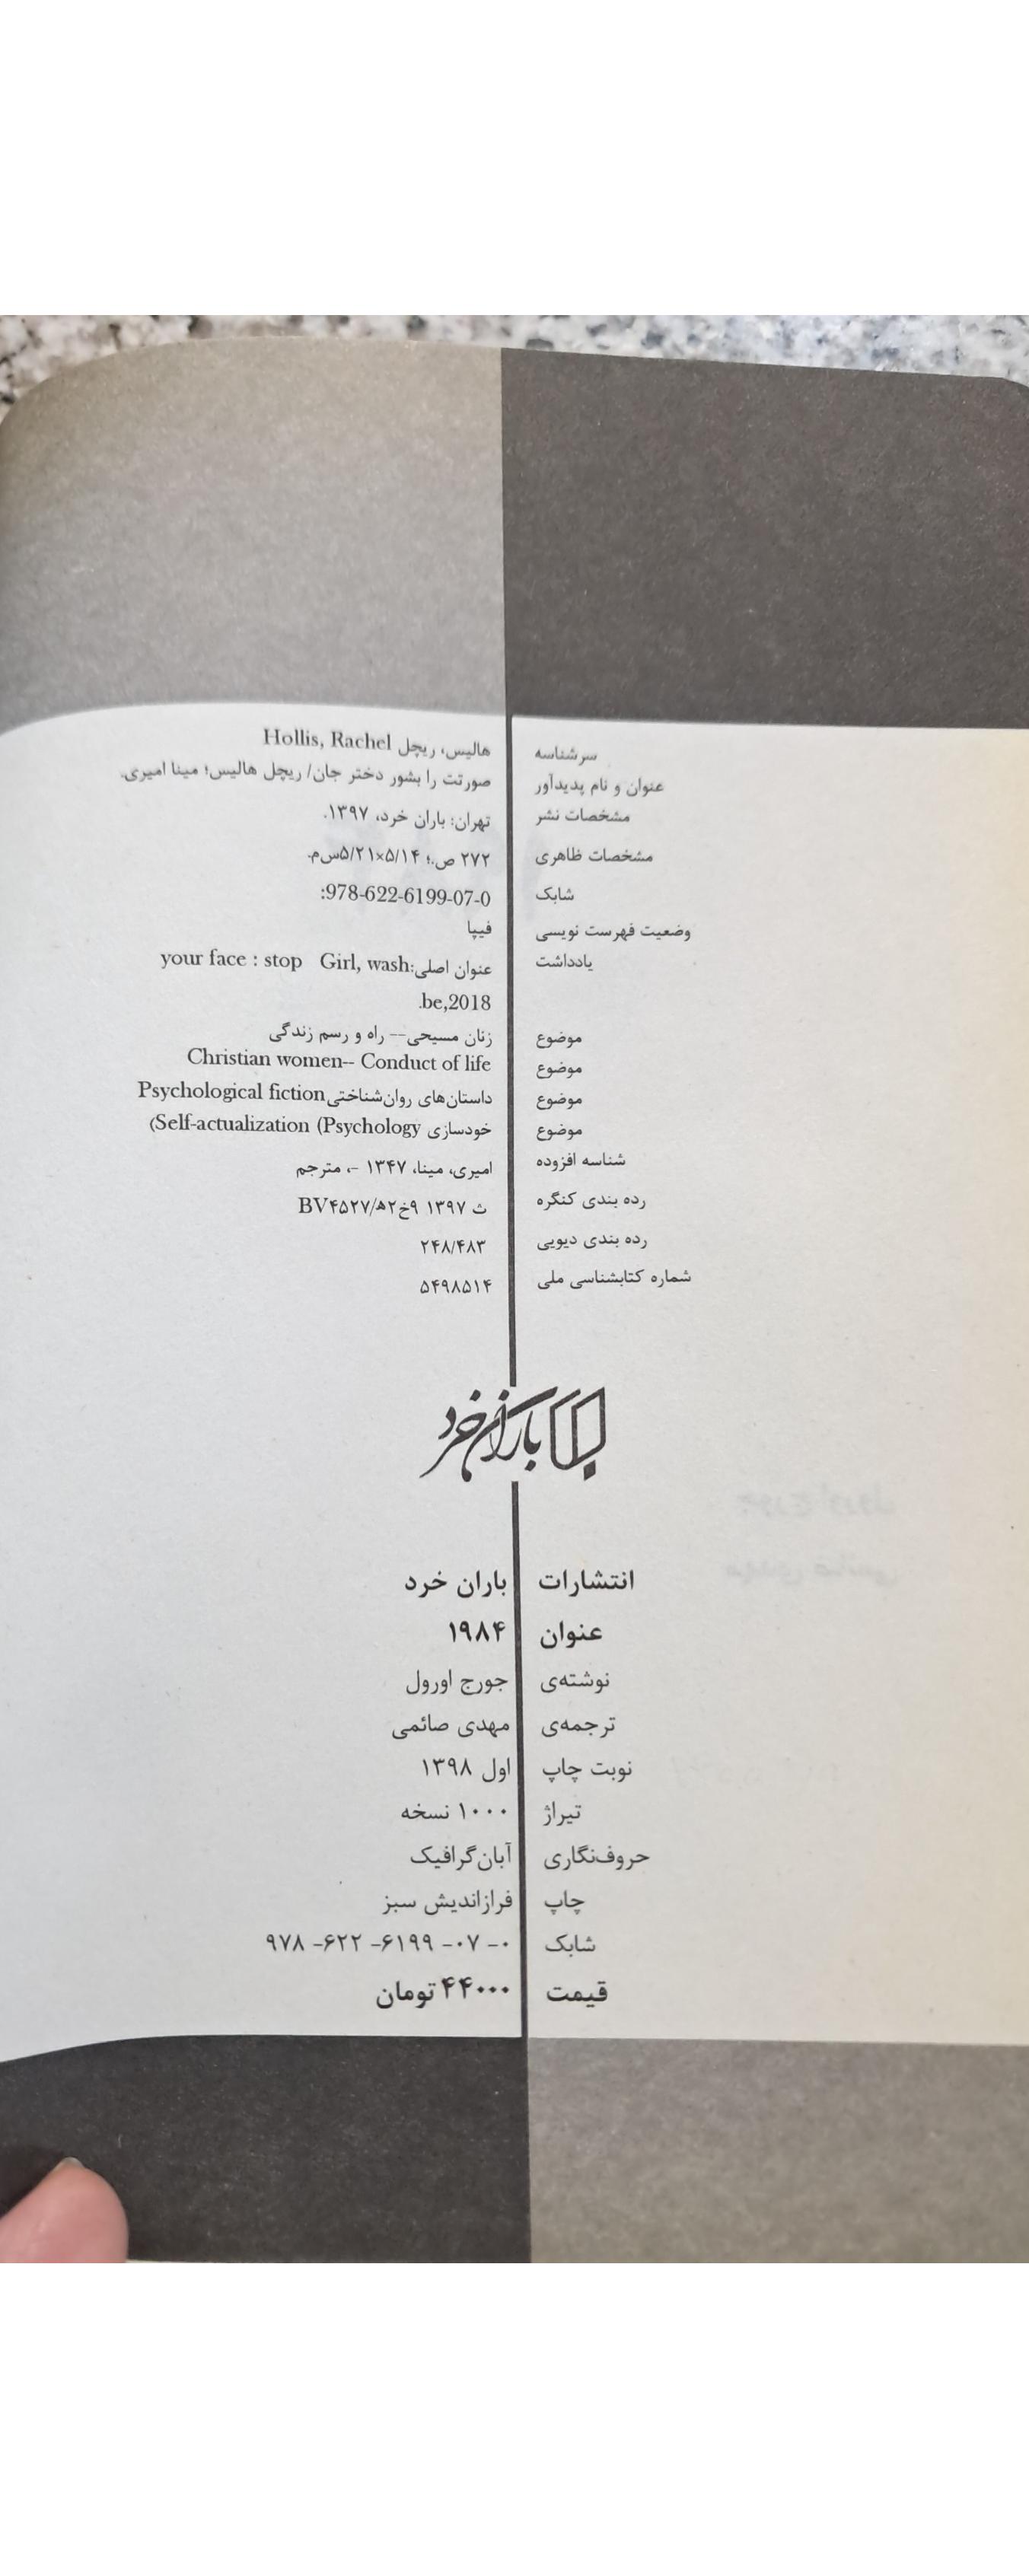 سرشناسه هالیس، ریچل Hollis, Rachel
عنوان و نام پدیدآور صورتت را بشور دختر جان/ ریچل هالیس؛ مینا امیری.
مشخصات نشر تهران: باران خرد، ۱۳۹۷.
مشخصات ظاهری ۲۷۲ ص.؛ ۵/۱۴×۵/۲۱س‌م.
شابک 978-622-6199-07-0:
وضعیت فهرست نویسی فیپا
یادداشت عنوان اصلی:Girl, wash your face : stop
be,2018.
موضوع زنان مسیحی-- راه و رسم زندگی
موضوع Christian women-- Conduct of life
موضوع داستان‌های روان‌شناختیPsychological fiction
موضوع خودسازی Self-actualization (Psychology)
شناسه افزوده امیری، مینا، ۱۳۴۷ -، مترجم
رده بندی کنگره ث ۱۳۹۷ ۹خ۲ه/BV۴۵۲۷
رده بندی دیویی ۲۴۸/۴۸۳
شماره کتابشناسی ملی ۵۴۹۸۵۱۴
باران خرد
انتشارات باران خرد
عنوان ۱۹۸۴
نوشته‌ی جورج اورول
ترجمه‌ی مهدی صائمی
نوبت چاپ اول ۱۳۹۸
تیراژ ۱۰۰۰ نسخه
حروف‌نگاری آبان‌گرافیک
چاپ فرازاندیش سبز
شابک ۹۷۸ -۶۲۲ -۶۱۹۹ -۰۷ -۰
قیمت ۴۴۰۰۰ تومان